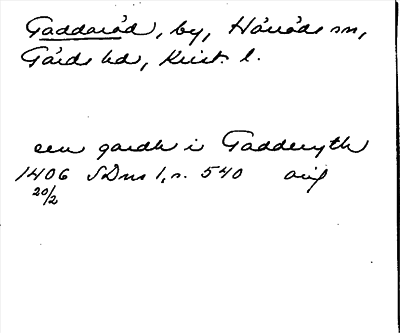 Gaddaröd, by, Hörröds sn,
Gärds hd, Krist. l.
een gardh i Gadderyth
1406 SDns 1, s. 540 orig
20/2